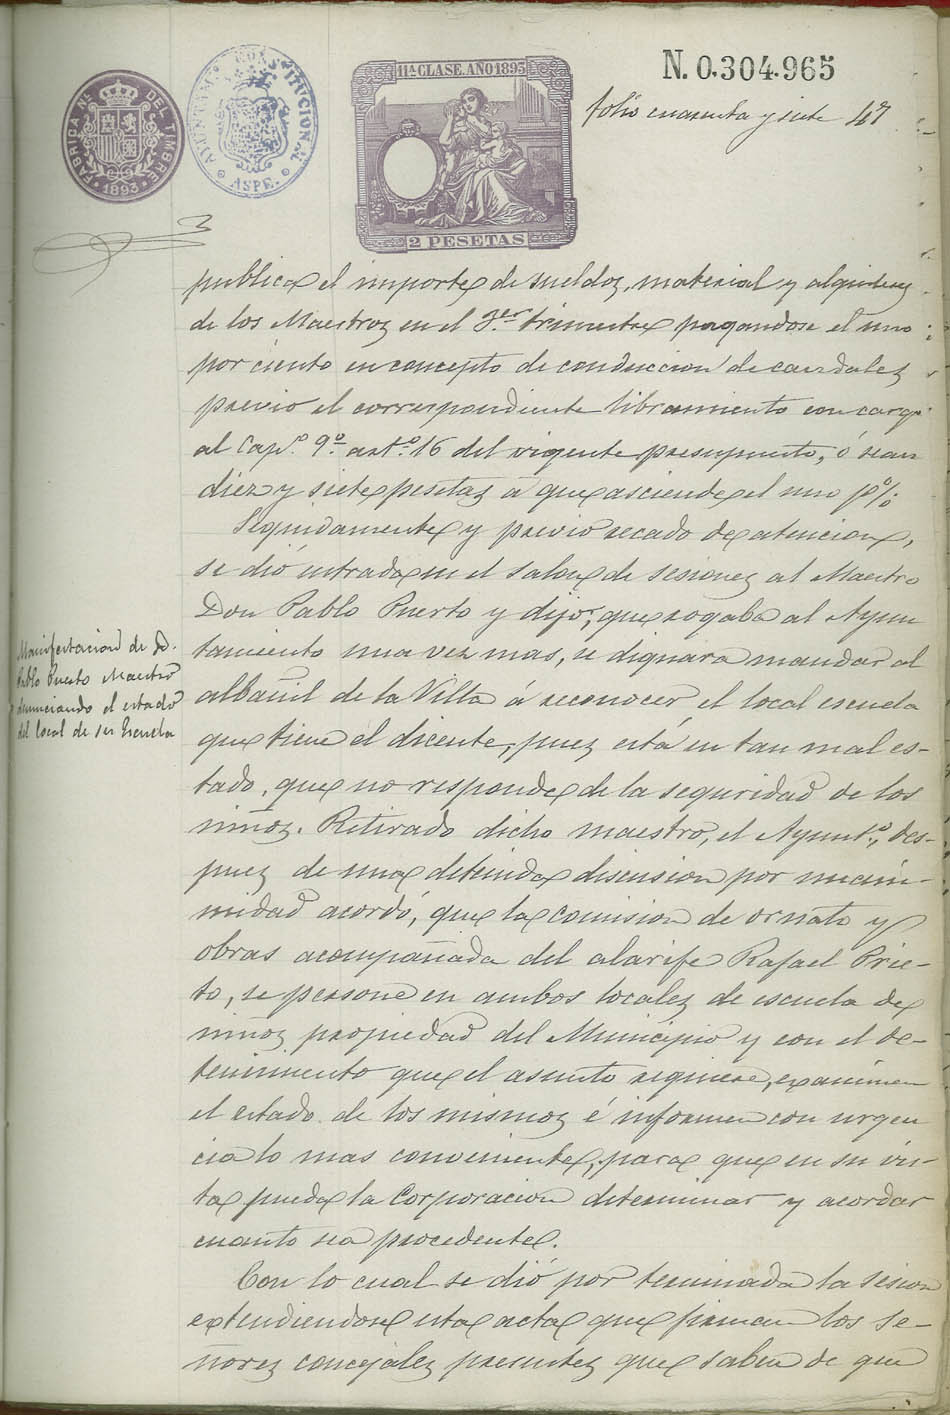 N. 0.304.965
11ª CLASE. AÑO 1893
FÁBRICA Nˡ DEL TIMBRE
1893
AYUNTAMᵗᵒ CONSTITUCIONAL
ASPE.
2 PESETAS
folio cuarenta y siete 47
publica el importe de sueldos, material y alquileres
de los Maestros en el 3.er trimestre pagandose el uno
por ciento en concepto de conduccion de caudales
previo el correspondiente libramiento con cargo
al Cap.º 9º artº 16 del vigente presupuesto, ó sean
diez y siete pesetas á que asciende el uno p%
Seguidamente y previo recado de atencion,
se dió entrada en el salon de sesiones al Maestro
Don Pablo Puerto y dijo, que rogaba al Ayun
tamiento una vez mas, se dignara mandar al
albañil de la Villa á reconocer el local escuela
que tiene el dicente, pues está en tan mal es-
tado, que no responde de la seguridad de los
niños. Retirado dicho maestro, el Ayuntº, des-
pues de una detenida discusion por unáni-
midad acordó, que la comision de ornato y
obras acompañada del alarife Rafael Prie-
to, se persone en ambos locales de escuela de
niños propiedad del Municipio y con el de-
tenimiento que el asunto requiere, exáminen
el estado de los mismos é informen con urgen
cia lo mas conveniente, para que en su vis-
ta pueda la Corporacion determinar y acordar
cuanto sea procedente.
Con lo cual se dió por terminada la sesion
extendiendose esta acta que firman los se-
ñores concejales presentes que saben de que
Manifestacion de D.
Pablo Puerto Maestro
denunciando el estado
del local de su Escuela